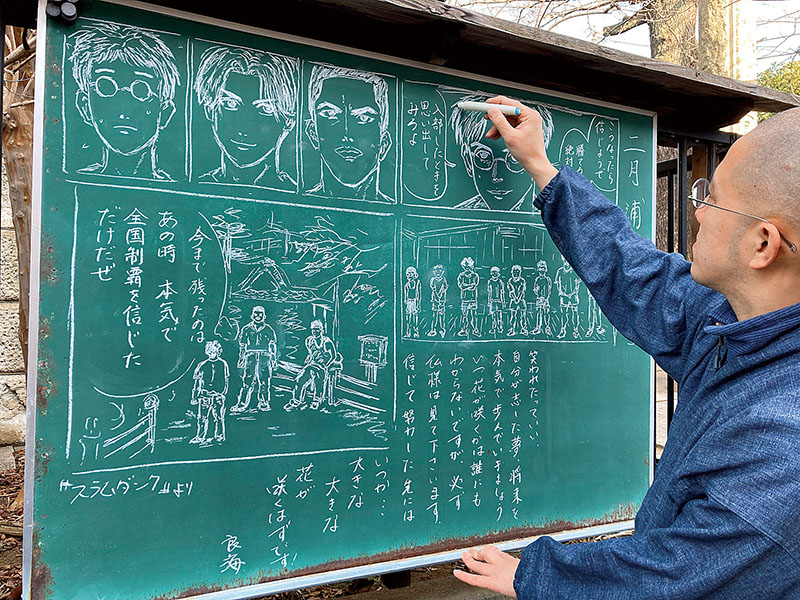 二月 浦
こうなったら
信じようぜ
勝てる
絶対
入部したときを
思い出して
みろよ
今まで 残ったのは
あの時 本気で
全国制覇を信じた
だけだぜ
笑われたっていい、
自分が志した夢、将来を
本気で歩んでいきましょう
いつ花が咲くかは誰にも
わからないですが、必ず
仏様は見て下さいます。
信じて努力した先には
いつか…
大きな
大きな
花が
咲くはずです!
良海
"スラムダンク"より